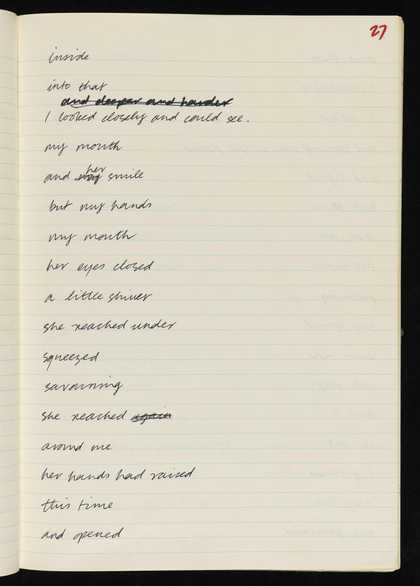 27
inside
into that
and deeper and harder
I looked closely and could see.
my mouth
and her smile
but my hands
my mouth
her eyes closed
a little shiver
she reached under
squeezed
savouring
she reached again
around me
her hands had raised
this time
and opened